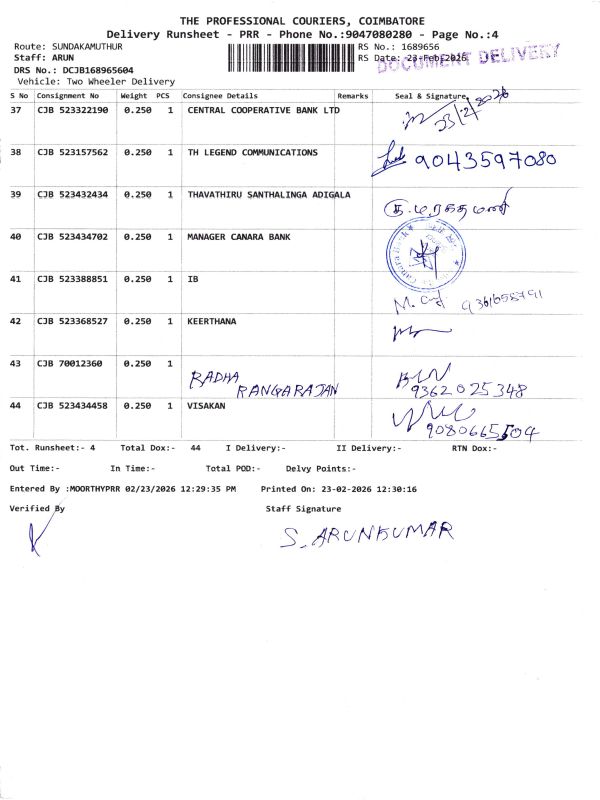 THE PROFESSIONAL COURIERS, COIMBATORE
Delivery Runsheet - PRR - Phone No.:9047080280 - Page No.:4
Route: SUNDAKAMUTHUR RS No.: 1689656
Staff: ARUN RS Date: 23-Feb-2026
DOCUMENT DELIVERY
DRS No.: DCJB168965604
Vehicle: Two Wheeler Delivery
S No Consignment No Weight PCS Consignee Details Remarks Seal & Signature
37 CJB 523322190 0.250 1 CENTRAL COOPERATIVE BANK LTD 23/2/2026
38 CJB 523157562 0.250 1 TH LEGEND COMMUNICATIONS 9043597080
39 CJB 523432434 0.250 1 THAVATHIRU SANTHALINGA ADIGALA
40 CJB 523434702 0.250 1 MANAGER CANARA BANK
41 CJB 523388851 0.250 1 IB
42 CJB 523368527 0.250 1 KEERTHANA
43 CJB 70012360 0.250 1 RADHA
RANGARAJAN 9362025348
44 CJB 523434458 0.250 1 VISAKAN
9080665504
Tot. Runsheet:- 4 Total Dox:- 44 I Delivery:- II Delivery:- RTN Dox:-
Out Time:- In Time:- Total POD:- Delvy Points:-
Entered By :MOORTHYPRR 02/23/2026 12:29:35 PM Printed On: 23-02-2026 12:30:16
Verified By Staff Signature
S. ARUNKUMAR